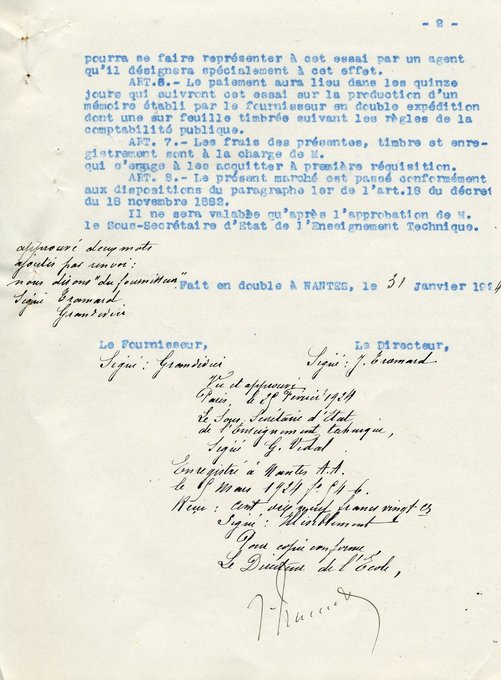 - 2 -
pourra se faire représenter à cet essai par un agent
qu'il désignera spécialement à cet effet.
ART.6.- Le paiement aura lieu dans les quinze
jours qui suivront cet essai sur la production d'un
mémoire établi par le fournisseur en double expédition
dont une sur feuille timbrée suivant les règles de la
comptabilité publique.
ART. 7.- Les frais des présentes, timbre et enre-
gistrement sont à la charge de M.
qui s'engage à les acquitter à première réquisition.
ART. 8.- Le présent marché est passé conformément
aux dispositions du paragraphe 1er de l'art.18 du décret
du 18 novembre 1882.
Il ne sera valable qu'après l'approbation de M.
le Sous-Secrétaire d'Etat de l'Enseignement Technique.
approuvé deux mots
ajoutés par renvoi:
nous disons "du fournisseur"
Signé Tramard
Grandidier
Fait en double à NANTES, le 31 Janvier 1924
Le Fournisseur,
Le Directeur,
Signé: Grandidier
Signé: J. Tramard
Vu et approuvé
Paris, le Février 1924
Le Sous Secrétaire d'Etat
de l'Enseignement technique,
Signé G. Vidal
Enregistré à Nantes A.A.
le Mars 1924 f°
Reçu: cent dix neuf francs vingt cs
Signé:
Pour copie conforme,
Le Directeur de l'Ecole,